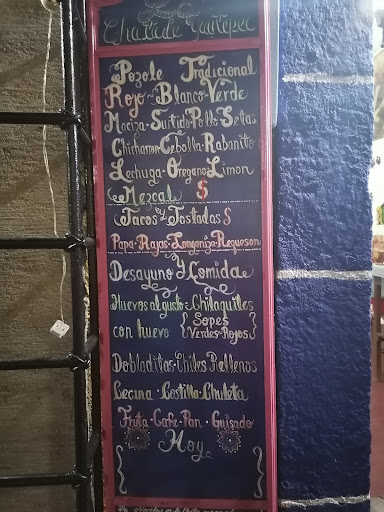 Pozole Tradicional
Rojo~Blanco~Verde
Maciza·Surtido·Pollo·Setas
Chicharron·Cebolla·Rabanito
Lechuga·Oregano·Limon
Mezcal $
Tacos y Tostadas $
Papa·Rajas·Longaniza·Requeson
Desayuno y Comida
Huevos al gusto·Chilaquiles
con huevo {Sopes}
Verdes·Rojos
Dobladitas·Chiles Rellenos
Cecina·Costilla·Chuleta
Fruta·Cafe·Pan·Guisado
Hoy